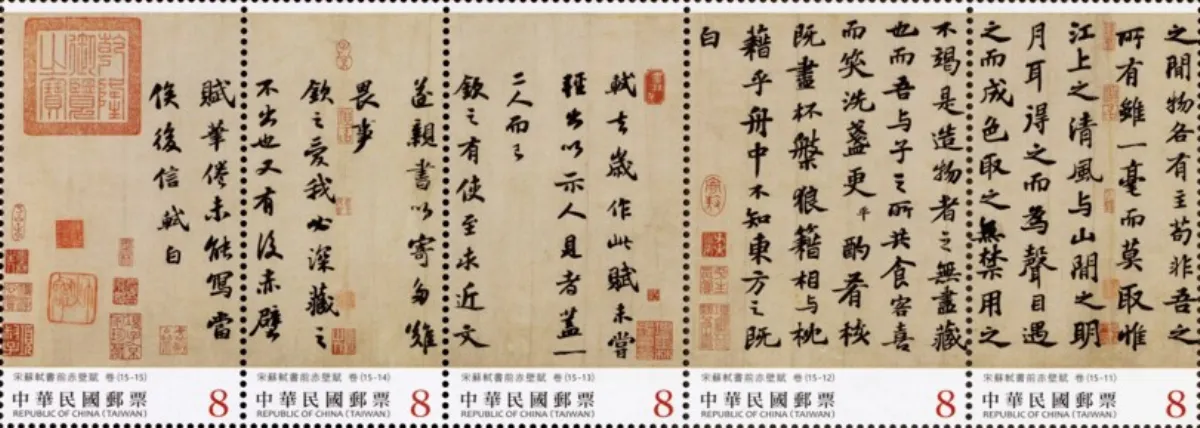 之間物各有主苟非吾之
所有雖一毫而莫取惟
江上之清風与山間之明
月耳得之而為聲目遇
之而成色取之無禁用之
不竭是造物者之無盡藏
也而吾与子之所共食客喜
而笑洗盞更平酌肴核
既盡杯槃狼籍相与枕
藉乎舟中不知東方之既
白
軾去歲作此賦未嘗
輕出以示人見者蓋一
二人而已
欽之有使至求近文
遂親書以寄多難
畏事
欽之愛我必深藏之
不出也又有後赤壁
賦筆倦未能寫當
俟後信軾白
乾隆御覽之寶
宋蘇軾書前赤壁賦 卷(15-15)
中華民國郵票 8
REPUBLIC OF CHINA (TAIWAN)
宋蘇軾書前赤壁賦 卷(15-14)
中華民國郵票 8
REPUBLIC OF CHINA (TAIWAN)
宋蘇軾書前赤壁賦 卷(15-13)
中華民國郵票 8
REPUBLIC OF CHINA (TAIWAN)
宋蘇軾書前赤壁賦 卷(15-12)
中華民國郵票 8
REPUBLIC OF CHINA (TAIWAN)
宋蘇軾書前赤壁賦 卷(15-11)
中華民國郵票 8
REPUBLIC OF CHINA (TAIWAN)